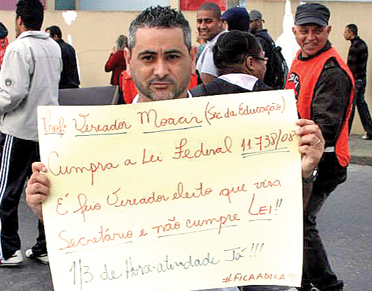 Profº Vereador Moacir (Sec da Educação)
Cumpra a Lei Federal 11738/08
É feio Vereador eleito que vira
Secretário e não cumpre LEI!!
1/3 de Hora-atividade Já!!!
#FICAADICA!!!